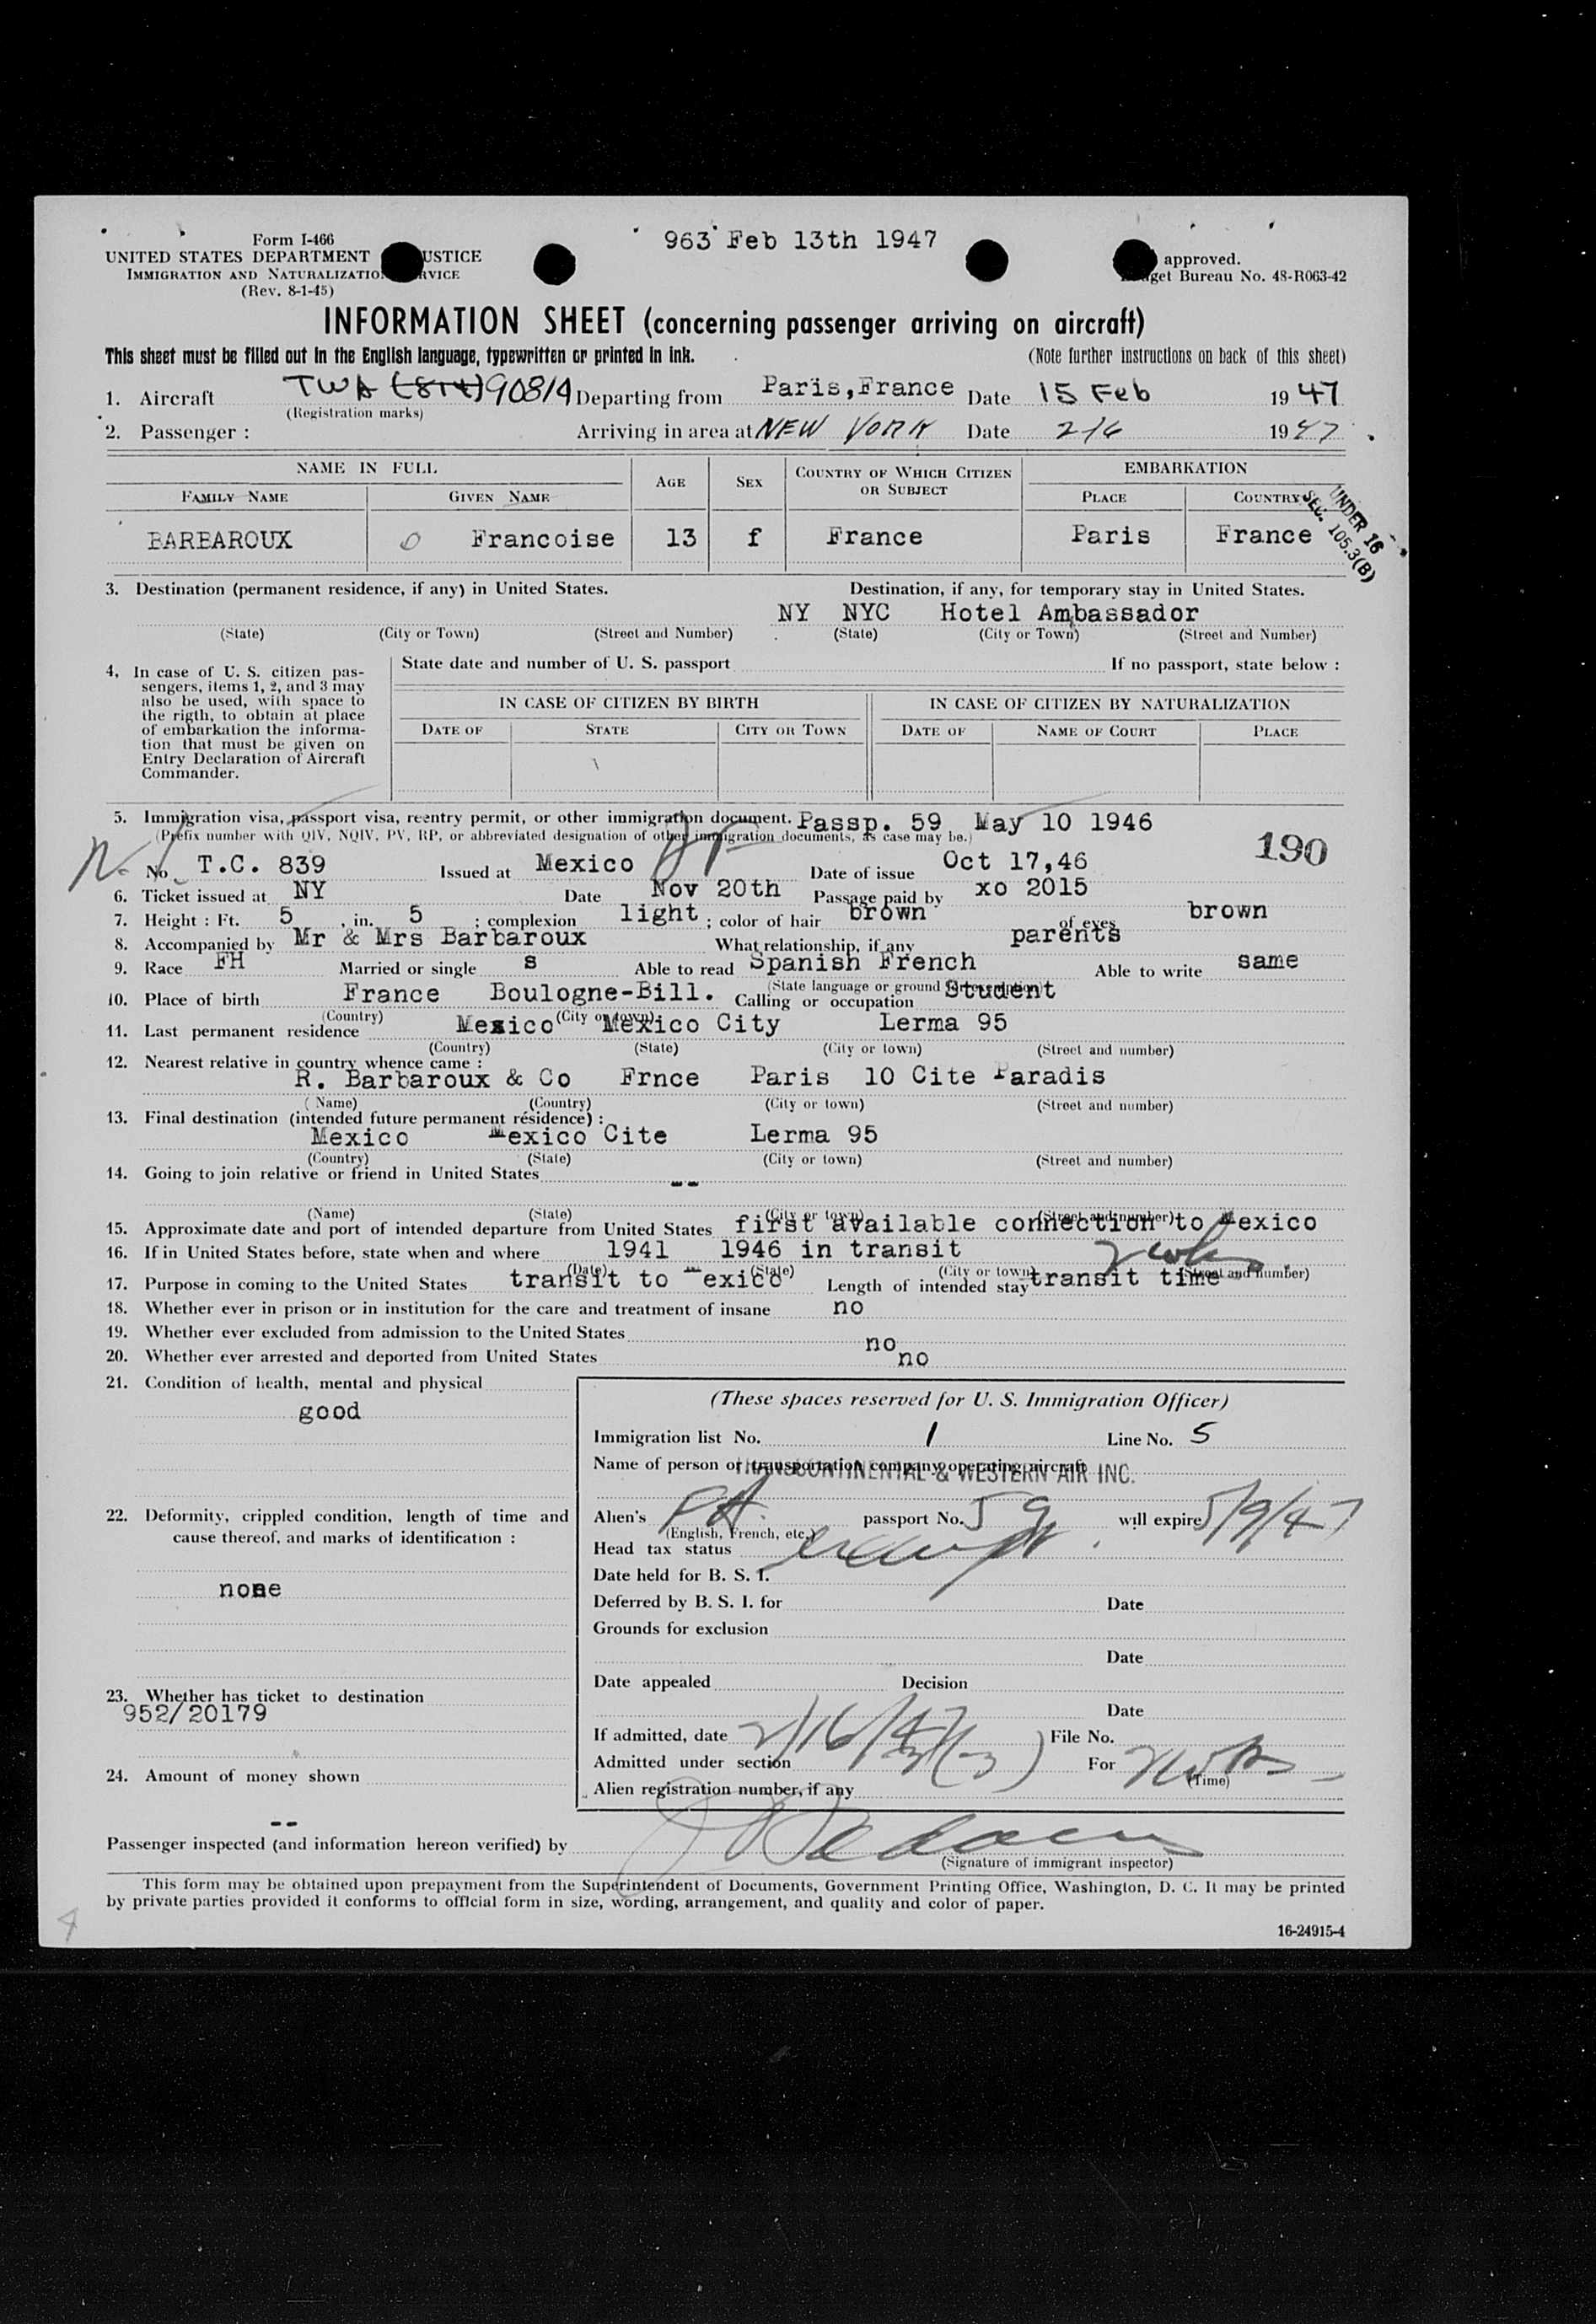 963 Feb 13th 1947
Form I-466
UNITED STATES DEPARTMENT USTICE
IMMIGRATION AND NATURALIZATIO RVICE
(Rev. 8-1-45)
approved.
get Bureau No. 48-R063-42
INFORMATION SHEET (concerning passenger arriving on aircraft)
This sheet must be filled out in the English language, typewritten or printed in ink. (Note further instructions on back of this sheet)
1. Aircraft TWA (814) 90814 Departing from Paris, France Date 15 Feb 1947
(Registration marks)
2. Passenger : Arriving in area at NEW YORK Date 2/6 1947
NAME IN FULL AGE SEX COUNTRY OF WHICH CITIZEN OR SUBJECT EMBARKATION
FAMILY NAME GIVEN NAME PLACE COUNTRY
UNDER 16
SEC. 105.3(B)
BARBAROUX Francoise 13 f France Paris France
3. Destination (permanent residence, if any) in United States. Destination, if any, for temporary stay in United States.
NY NYC Hotel Ambassador
(State) (City or Town) (Street and Number) (State) (City or Town) (Street and Number)
4. In case of U. S. citizen pas-
sengers, items 1, 2, and 3 may
also be used, with space to
the rigth, to obtain at place
of embarkation the informa-
tion that must be given on
Entry Declaration of Aircraft
Commander.
State date and number of U. S. passport If no passport, state below :
IN CASE OF CITIZEN BY BIRTH IN CASE OF CITIZEN BY NATURALIZATION
DATE OF STATE CITY OR TOWN DATE OF NAME OF COURT PLACE
5. Immigration visa, passport visa, reentry permit, or other immigration document. Passp. 59 May 10 1946
(Prefix number with QIV, NQIV, PV, RP, or abbreviated designation of other immigration documents, as case may be.)
190
No. T.C. 839 Issued at Mexico Date of issue Oct 17,46
6. Ticket issued at NY Date Nov 20th Passage paid by xo 2015
7. Height : Ft. 5 , in. 5 ; complexion light ; color of hair brown of eyes brown
8. Accompanied by Mr & Mrs Barbaroux What relationship, if any parents
9. Race FH Married or single s Able to read Spanish French Able to write same
(State language or ground for exemption)
10. Place of birth France Boulogne-Bill. Calling or occupation Student
(Country) (City or town)
11. Last permanent residence Mexico Mexico City Lerma 95
(Country) (State) (City or town) (Street and number)
12. Nearest relative in country whence came :
R. Barbaroux & Co Frnce Paris 10 Cite Paradis
(Name) (Country) (City or town) (Street and number)
13. Final destination (intended future permanent résidence) :
Mexico Mexico Cite Lerma 95
(Country) (State) (City or town) (Street and number)
14. Going to join relative or friend in United States --
(Name) (State) (City or town) (Street and number)
15. Approximate date and port of intended departure from United States first available connection to Mexico
16. If in United States before, state when and where 1941 1946 in transit
(Date) (State) (City or town) (Street and number)
17. Purpose in coming to the United States transit to Mexico Length of intended stay transit time
18. Whether ever in prison or in institution for the care and treatment of insane no
19. Whether ever excluded from admission to the United States no
20. Whether ever arrested and deported from United States no
21. Condition of health, mental and physical
good
22. Deformity, crippled condition, length of time and
cause thereof, and marks of identification :
none
23. Whether has ticket to destination
952/20179
24. Amount of money shown
--
(These spaces reserved for U. S. Immigration Officer)
Immigration list No. 1 Line No. 5
Name of person or transportation company operating aircraft
TRANSCONTINENTAL & WESTERN AIR INC.
Alien's passport No. 59 will expire 5/9/47
(English, French, etc.)
Head tax status
Date held for B. S. I.
Deferred by B. S. I. for Date
Grounds for exclusion
Date
Date appealed Decision
Date
If admitted, date 2/16/47 File No.
Admitted under section For
(Time)
Alien registration number, if any
Passenger inspected (and information hereon verified) by
(Signature of immigrant inspector)
This form may be obtained upon prepayment from the Superintendent of Documents, Government Printing Office, Washington, D. C. It may be printed
by private parties provided it conforms to official form in size, wording, arrangement, and quality and color of paper.
16-24915-4